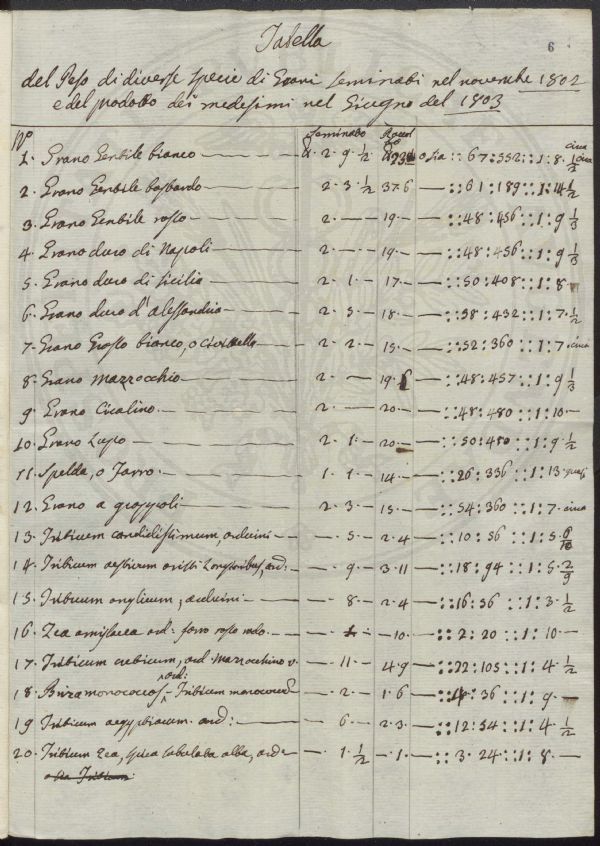 6
Tabella
del Peso di diverse specie di Grani seminati nel novembre 1802
e del prodotto dei medesimi nel Giugno del 1803
No Seminato
1. Grano Gentile bianco — 2. 9. ½ osia :: 67:552::1:8. ½ circa
2. Grano Gentile bastardo — 2. 3. ½ 37.6 — ::61:189::1:14 ½
3. Grano Gentile rosso — 2. — 19. — ::48:456::1:9 ⅓
4. Grano duro di Napoli — 2. — 19. — ::48:456::1:9 ⅓
5. Grano duro di Sicilia — 2. 1. — 17. — ::50:408::1:8
6. Grano duro d'Alessandria — 2. 5. — 18. — ::58:432::1:7. ½
7. Grano Grosso bianco, o — 2. 2. — 15. — ::52:360::1:7. circa
8. Grano Mazzocchio — 2. — 19. — ::48:457::1:9 ⅓
9. Grano Cicalino. — 2. — 20. — ::48:480::1:10 —
10. Grano Lupo — 2. 1. — 20. — ::50:480::1:9. ½
11. Spelda, o Farro. — 1. 1. — 14. — ::26:336::1:13. quasi
12. Grano a grappoli — 2. 3. — 15. — ::54:360::1:7. circa
13. Triticum candidissimum, arduini — . 5. — 2. 4 — ::10:56::1:5. 6/10
14. Triticum aestivum aristis longioribus, ard: — . 9. — 3. 11 — ::18:94::1:5. 2/9
15. Triticum anglicum, arduini — . 8. — 2. 4 — ::16:56::1:3. ½
16. Zea amylacea ard: farro rosso — 1. — 10. — ::2:20::1:10 —
17. Triticum cubicum, ard. Mazzochino — . 11 — 4. 9 — ::22:105::1:4. ½
18. monococcos ard: Triticum — . 2. — 1. 6 — ::4:36::1:9. —
19. Triticum aegyptiacum ard: — 6. — 2. 3. — ::12:54::1:4. ½
20. Triticum Zea, spica alba, ard: — . 1. ½ — 1. — ::3:24::1:8. —